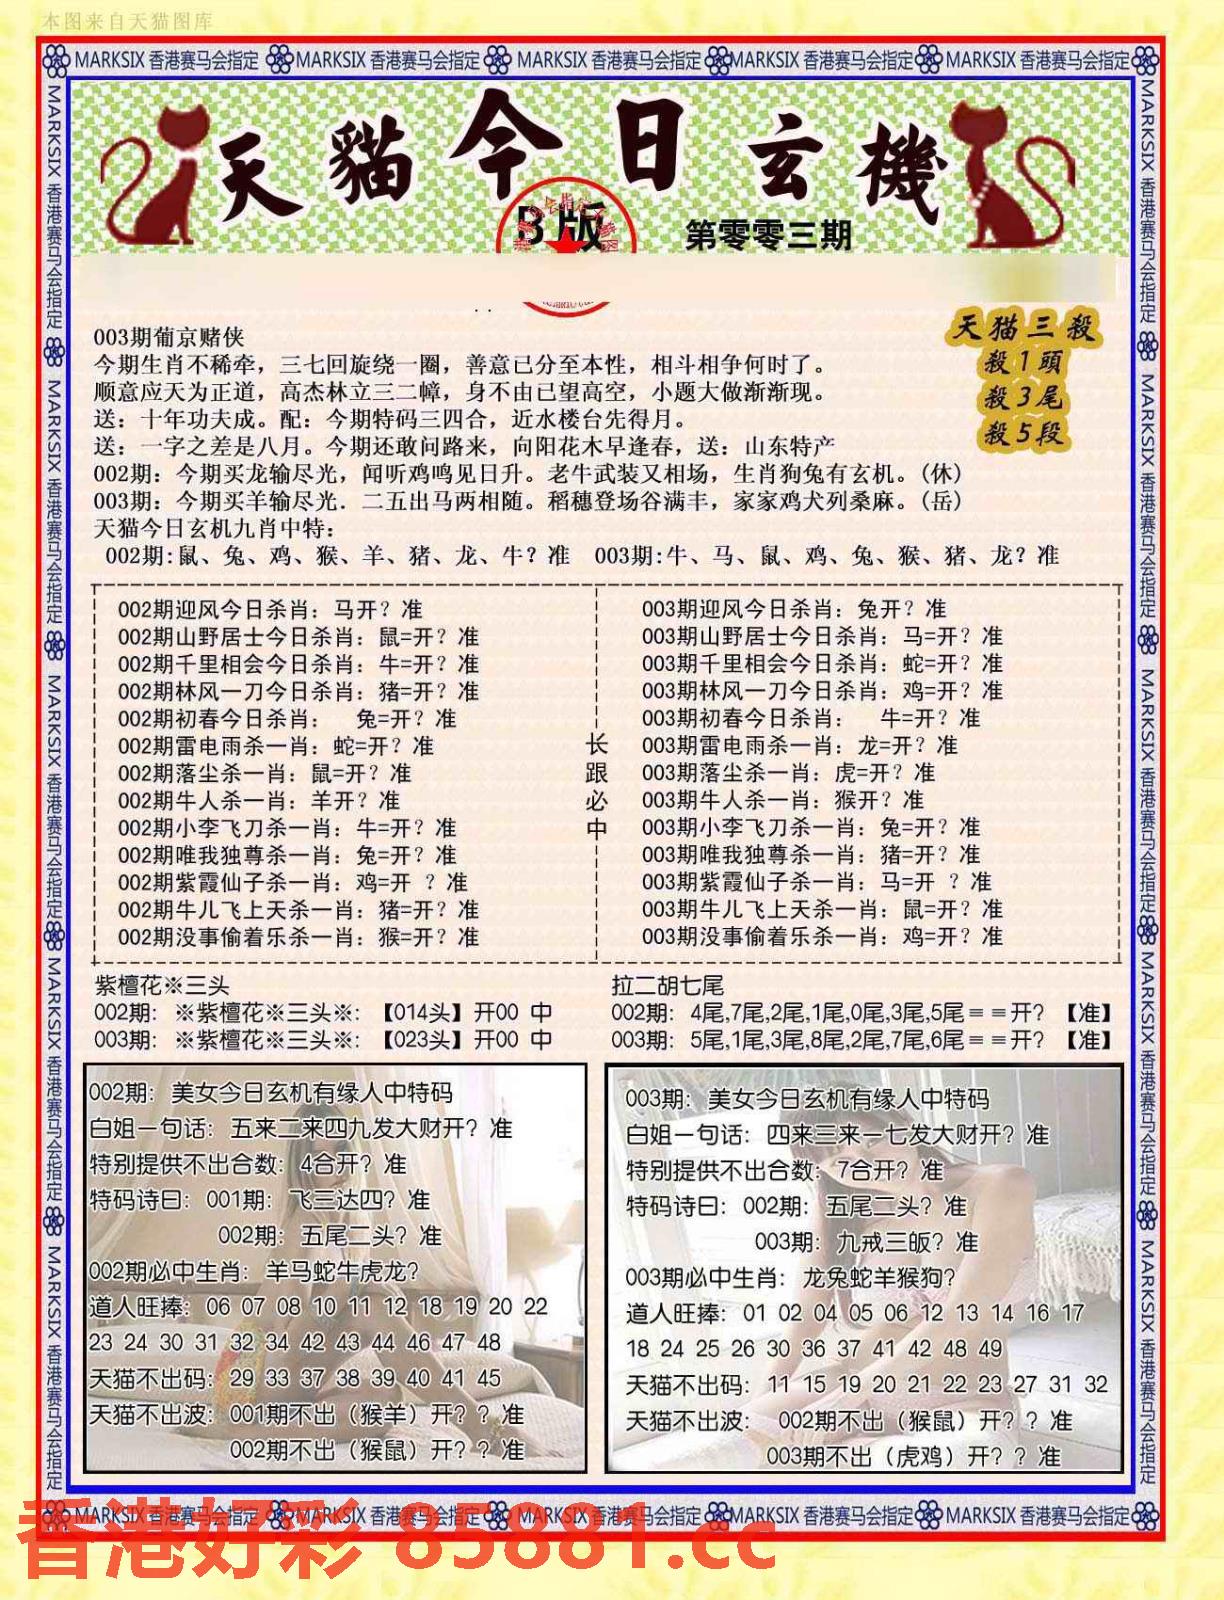 本图来自天猫图库
MARKSIX 香港赛马会指定 MARKSIX 香港赛马会指定 MARKSIX 香港赛马会指定 MARKSIX 香港赛马会指定 MARKSIX 香港赛马会指定
天貓今日玄機
B版
第零零三期
天猫三殺
殺1頭
殺3尾
殺5段
003期葡京赌侠
今期生肖不稀牵，三七回旋绕一圈，善意已分至本性，相斗相争何时了。
顺意应天为正道，高杰林立三二幛，身不由已望高空，小题大做渐渐现。
送：十年功夫成。配：今期特码三四合，近水楼台先得月。
送：一字之差是八月。今期还敢问路来，向阳花木早逢春，送：山东特产
002期：今期买龙输尽光，闻听鸡鸣见日升。老牛武装又相场，生肖狗兔有玄机。(休)
003期：今期买羊输尽光．二五出马两相随。稻穗登场谷满丰，家家鸡犬列桑麻。(岳)
天猫今日玄机九肖中特：
002期:鼠、兔、鸡、猴、羊、猪、龙、牛？准 003期:牛、马、鼠、鸡、兔、猴、猪、龙？准
002期迎风今日杀肖：马开？准
002期山野居士今日杀肖：鼠=开？准
002期千里相会今日杀肖：牛=开？准
002期林风一刀今日杀肖：猪=开？准
002期初春今日杀肖： 兔=开？准
002期雷电雨杀一肖：蛇=开？准
002期落尘杀一肖：鼠=开？准
002期牛人杀一肖：羊开？准
002期小李飞刀杀一肖：牛=开？准
002期唯我独尊杀一肖：兔=开？准
002期紫霞仙子杀一肖：鸡=开 ？准
002期牛儿飞上天杀一肖：猪=开？准
002期没事偷着乐杀一肖：猴=开？准
长跟必中
003期迎风今日杀肖：兔开？准
003期山野居士今日杀肖：马=开？准
003期千里相会今日杀肖：蛇=开？准
003期林风一刀今日杀肖：鸡=开？准
003期初春今日杀肖： 牛=开？准
003期雷电雨杀一肖：龙=开？准
003期落尘杀一肖：虎=开？准
003期牛人杀一肖：猴开？准
003期小李飞刀杀一肖：兔=开？准
003期唯我独尊杀一肖：猪=开？准
003期紫霞仙子杀一肖：马=开 ？准
003期牛儿飞上天杀一肖：鼠=开？准
003期没事偷着乐杀一肖：鸡=开？准
紫檀花※三头
002期：※紫檀花※三头※：【014头】开00 中
003期：※紫檀花※三头※：【023头】开00 中
拉二胡七尾
002期：4尾,7尾,2尾,1尾,0尾,3尾,5尾＝＝开？【准】
003期：5尾,1尾,3尾,8尾,2尾,7尾,6尾＝＝开？【准】
002期：美女今日玄机有缘人中特码
白姐一句话：五来二来四九发大财开？准
特别提供不出合数：4合开？准
特码诗曰：001期：飞三达四？准
002期：五尾二头？准
002期必中生肖：羊马蛇牛虎龙？
道人旺捧：06 07 08 10 11 12 18 19 20 22
23 24 30 31 32 34 42 43 44 46 47 48
天猫不出码：29 33 37 38 39 40 41 45
天猫不出波：001期不出（猴羊）开？？准
002期不出（猴鼠）开？？准
003期：美女今日玄机有缘人中特码
白姐一句话：四来三来一七发大财开？准
特别提供不出合数：7合开？准
特码诗曰：002期：五尾二头？准
003期：九戒三皈？准
003期必中生肖：龙兔蛇羊猴狗？
道人旺捧：01 02 04 05 06 12 13 14 16 17
18 24 25 26 30 36 37 41 42 48 49
天猫不出码：11 15 19 20 21 22 23 27 31 32
天猫不出波： 002期不出（猴鼠）开？？准
003期不出（虎鸡）开？？准
MARKSIX 香港赛马会指定 MARKSIX 香港赛马会指定 MARKSIX 香港赛马会指定 MARKSIX 香港赛马会指定
MARKSIX 香港赛马会指定 MARKSIX 香港赛马会指定 MARKSIX 香港赛马会指定 MARKSIX 香港赛马会指定 MARKSIX 香港赛马会指定
MARKSIX 香港赛马会指定 MARKSIX 香港赛马会指定 MARKSIX 香港赛马会指定 MARKSIX 香港赛马会指定 MARKSIX 香港赛马会指定
香港好彩 85881.cc